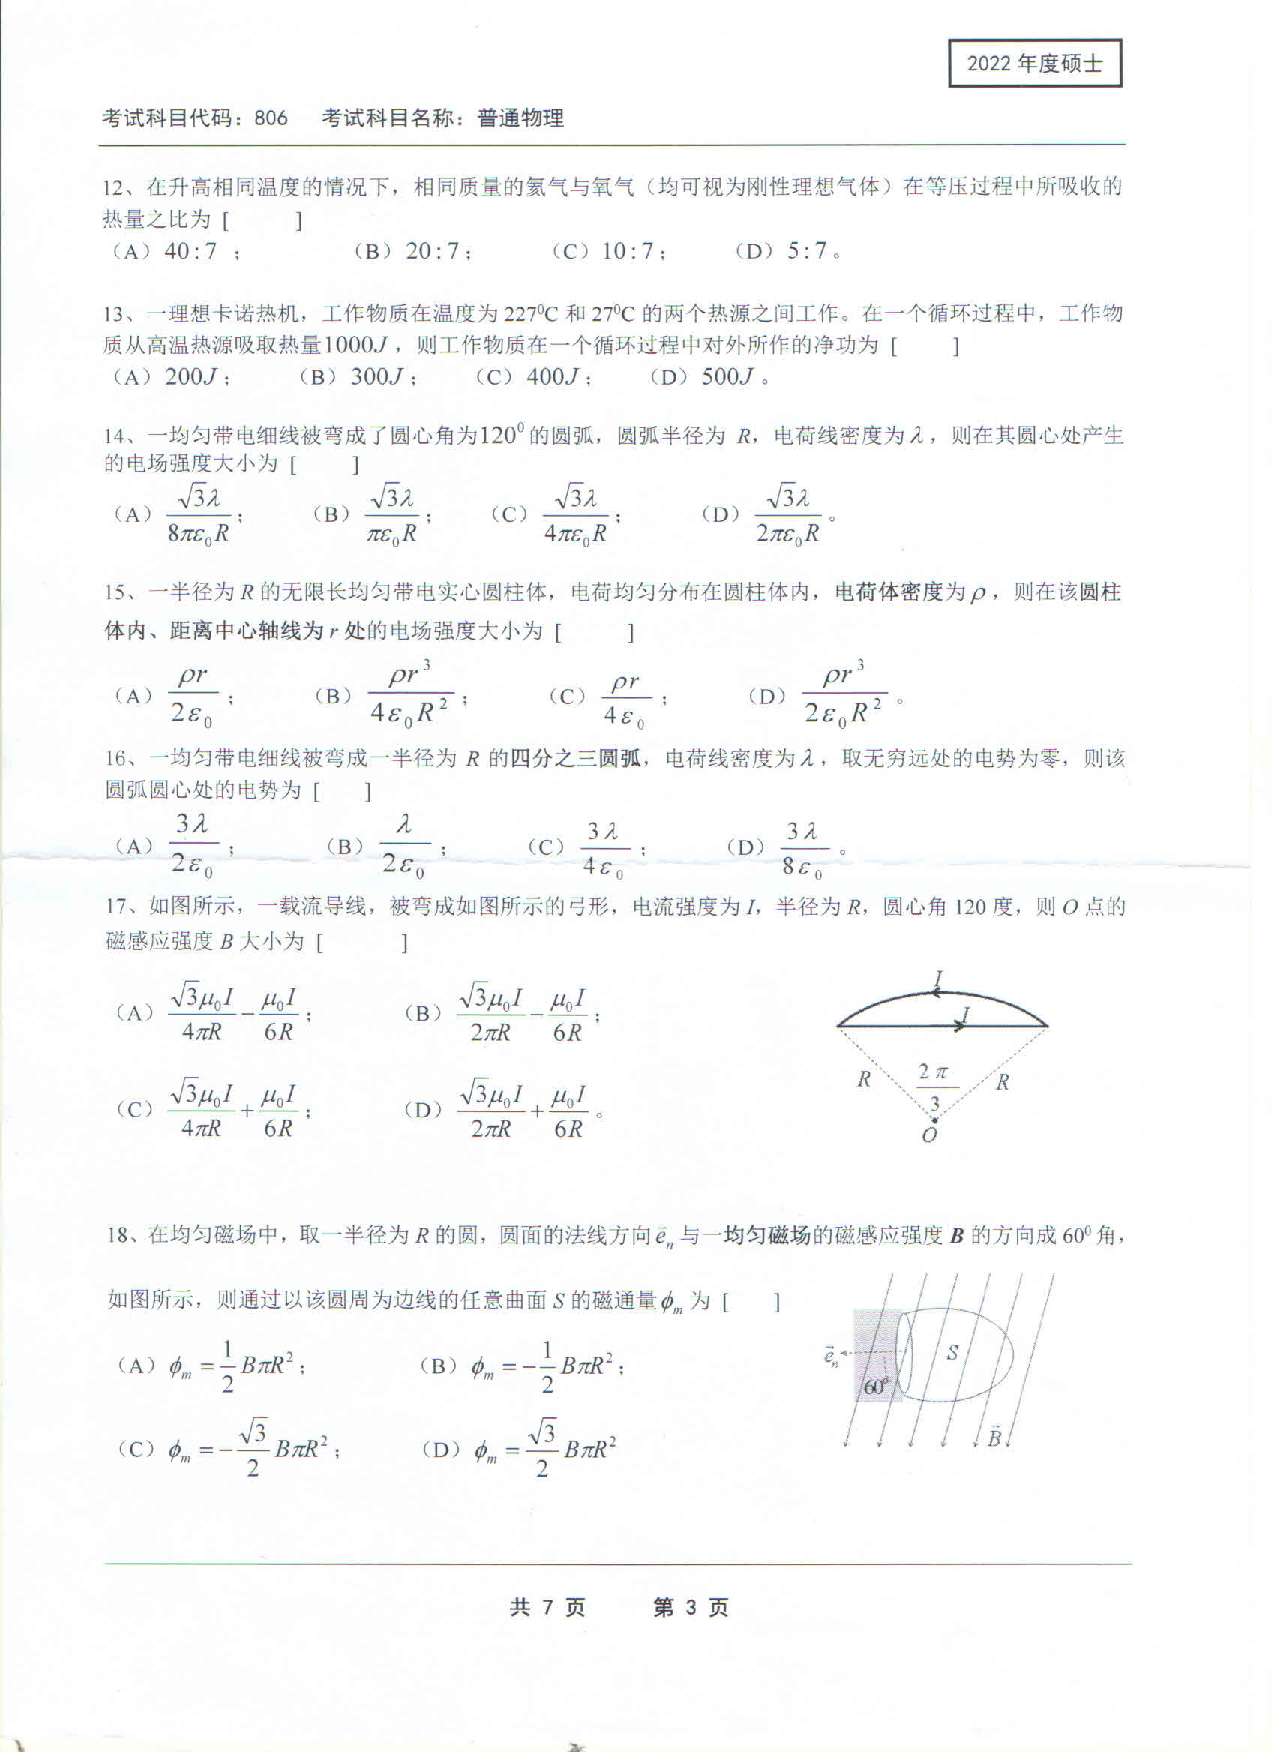 2022 年度硕士
考试科目代码：806 考试科目名称：普通物理
12、在升高相同温度的情况下，相同质量的氦气与氧气（均可视为刚性理想气体）在等压过程中所吸收的
热量之比为 [ ]
（A）40:7 ； （B）20:7； （C）10:7； （D）5:7。
13、一理想卡诺热机，工作物质在温度为 227⁰C 和 27⁰C 的两个热源之间工作。在一个循环过程中，工作物
质从高温热源吸取热量1000J，则工作物质在一个循环过程中对外所作的净功为 [ ]
（A）200J； （B）300J； （C）400J； （D）500J。
14、一均匀带电细线被弯成了圆心角为120⁰的圆弧，圆弧半径为 R，电荷线密度为λ，则在其圆心处产生
的电场强度大小为 [ ]
（A）√3λ/8πε₀R； （B）√3λ/πε₀R； （C）√3λ/4πε₀R； （D）√3λ/2πε₀R。
15、一半径为 R 的无限长均匀带电实心圆柱体，电荷均匀分布在圆柱体内，电荷体密度为ρ，则在该圆柱
体内、距离中心轴线为 r 处的电场强度大小为 [ ]
（A）ρr/2ε₀； （B）ρr³/4ε₀R²； （C）ρr/4ε₀； （D）ρr³/2ε₀R²。
16、一均匀带电细线被弯成一半径为 R 的四分之三圆弧，电荷线密度为λ，取无穷远处的电势为零，则该
圆弧圆心处的电势为 [ ]
（A）3λ/2ε₀； （B）λ/2ε₀； （C）3λ/4ε₀； （D）3λ/8ε₀。
17、如图所示，一载流导线，被弯成如图所示的弓形，电流强度为 I，半径为 R，圆心角 120 度，则 O 点的
磁感应强度 B 大小为 [ ]
（A）√3μ₀I/4πR − μ₀I/6R； （B）√3μ₀I/2πR − μ₀I/6R；
（C）√3μ₀I/4πR + μ₀I/6R； （D）√3μ₀I/2πR + μ₀I/6R。
I
I
R 2π/3 R
O
18、在均匀磁场中，取一半径为 R 的圆，圆面的法线方向e⃗ₙ与一均匀磁场的磁感应强度 B 的方向成 60⁰角，
如图所示，则通过以该圆周为边线的任意曲面 S 的磁通量ϕₘ为 [ ]
（A）ϕₘ = 1/2 BπR²； （B）ϕₘ = −1/2 BπR²；
（C）ϕₘ = −√3/2 BπR²； （D）ϕₘ = √3/2 BπR²
e⃗ₙ S
60⁰
B⃗
共 7 页 第 3 页